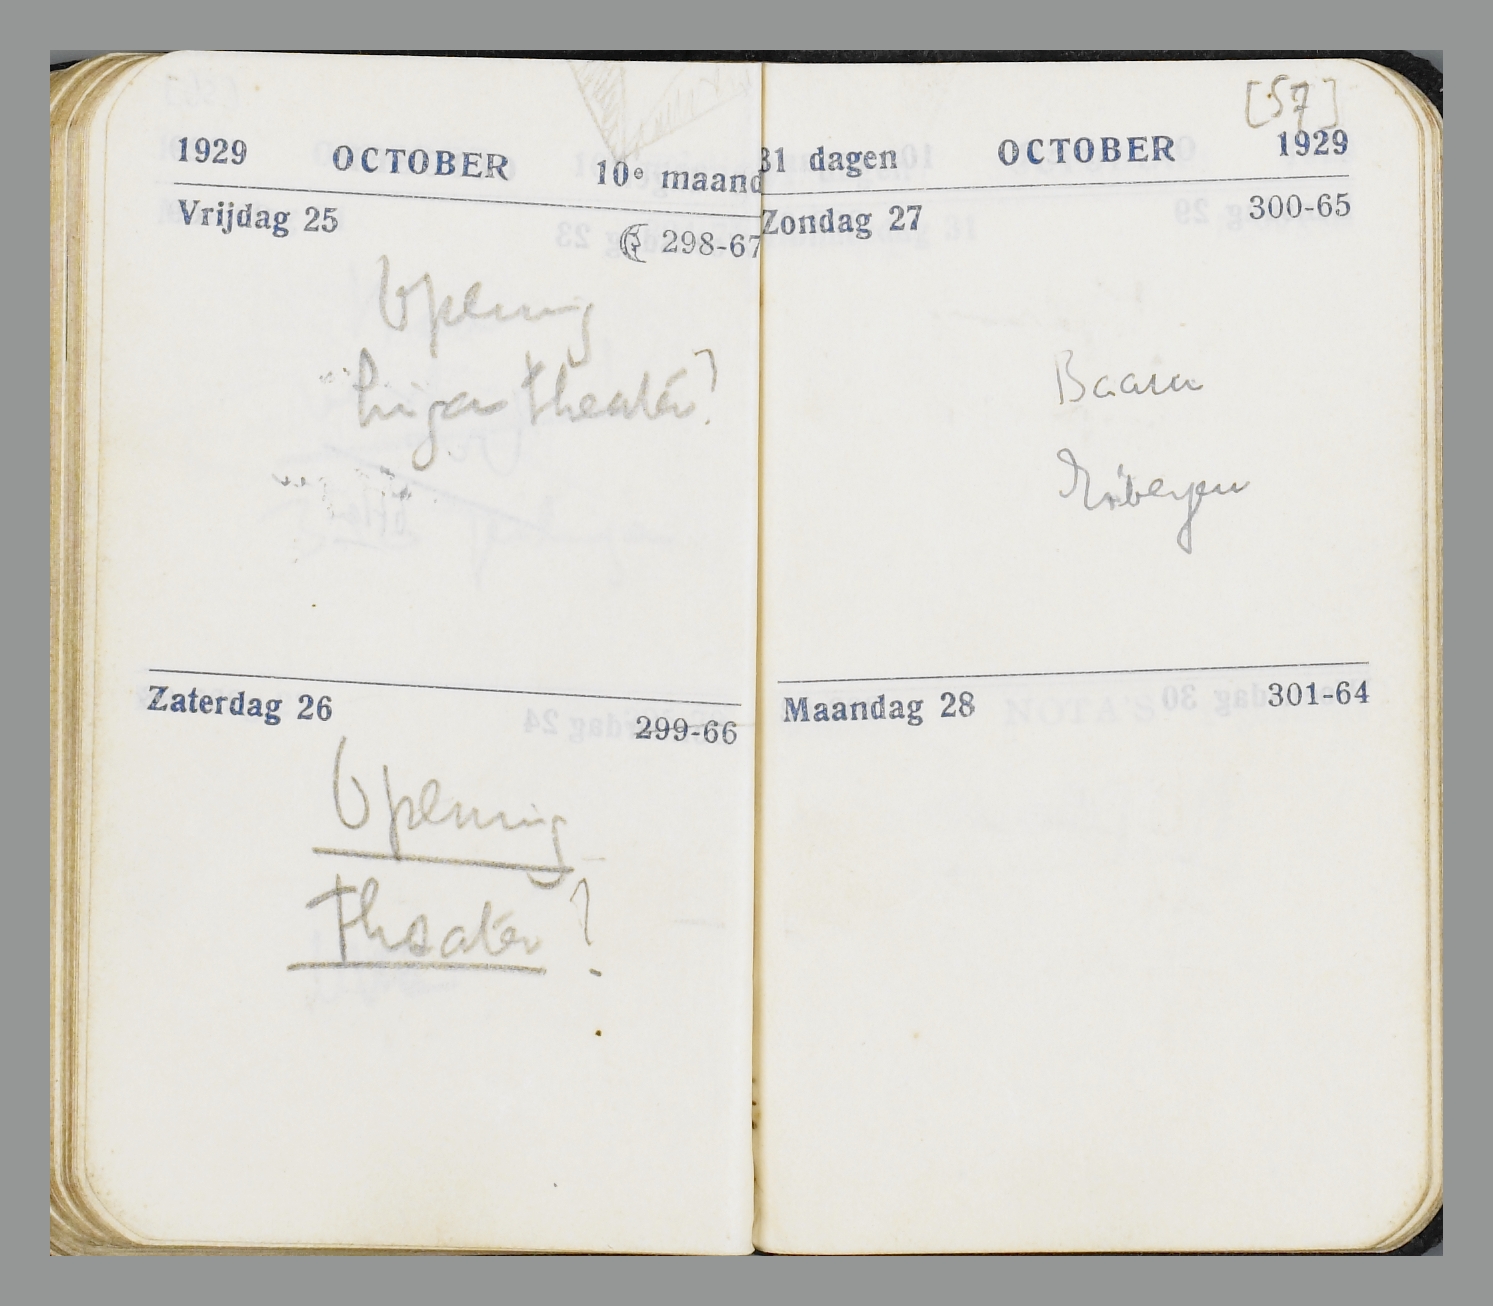 1929 OCTOBER 10e maand
Vrijdag 25
298-67
Opening
theater?
Zaterdag 26
299-66
Opening
theater?
[57]
31 dagen OCTOBER 1929
Zondag 27
300-65
Baarn
Maandag 28
301-64